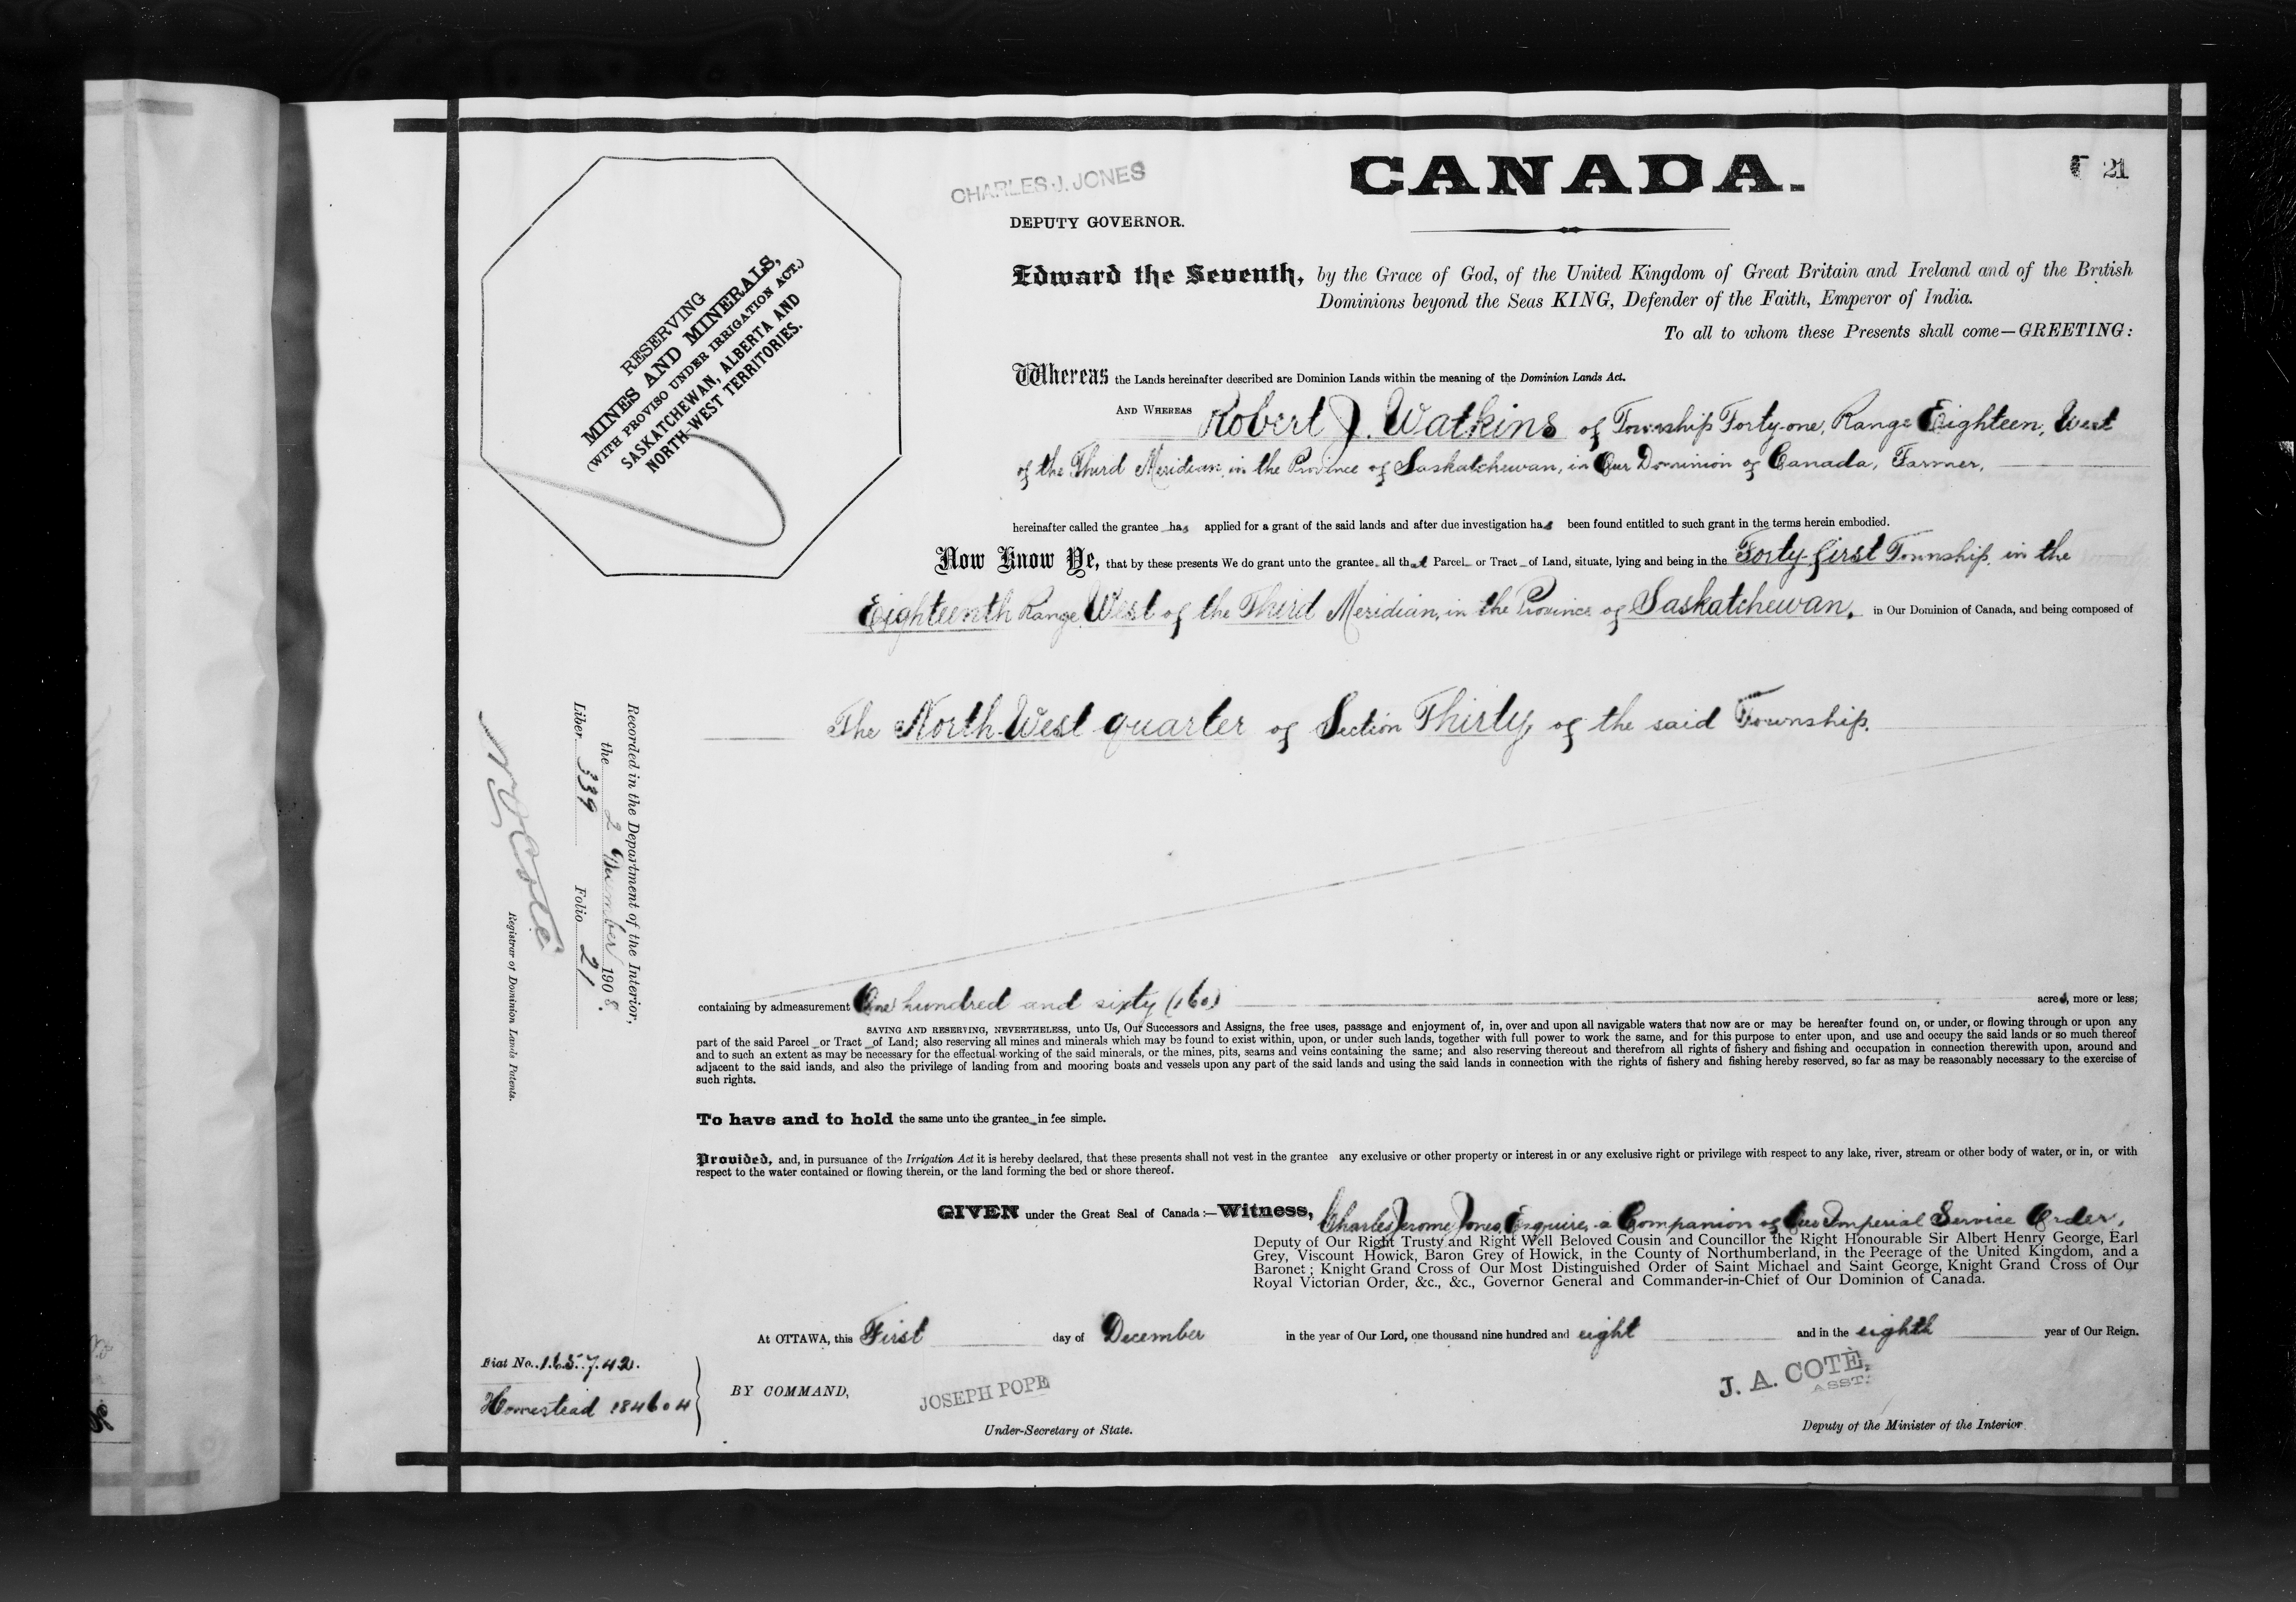 CANADA.
21
CHARLES J. JONES
DEPUTY GOVERNOR.
RESERVING
MINES AND MINERALS,
(WITH PROVISO UNDER IRRIGATION ACT.)
SASKATCHEWAN, ALBERTA AND
NORTH-WEST TERRITORIES.
Edward the Seventh, by the Grace of God, of the United Kingdom of Great Britain and Ireland and of the British
Dominions beyond the Seas KING, Defender of the Faith, Emperor of India.
To all to whom these Presents shall come—GREETING:
Whereas the Lands hereinafter described are Dominion Lands within the meaning of the Dominion Lands Act.
AND WHEREAS Robert J. Watkins of Township Forty-one, Range Eighteen, West
of the Third Meridian, in the Province of Saskatchewan, in Our Dominion of Canada, Farmer,
hereinafter called the grantee has applied for a grant of the said lands and after due investigation has been found entitled to such grant in the terms herein embodied.
Now Know Ye, that by these presents We do grant unto the grantee all that Parcel or Tract of Land, situate, lying and being in the Forty-first Township, in the
Eighteenth Range West of the Third Meridian, in the Province of Saskatchewan, in Our Dominion of Canada, and being composed of
The North-West quarter of Section Thirty, of the said Township.
containing by admeasurement One hundred and sixty (160) acres, more or less;
SAVING AND RESERVING, NEVERTHELESS, unto Us, Our Successors and Assigns, the free uses, passage and enjoyment of, in, over and upon all navigable waters that now are or may be hereafter found on, or under, or flowing through or upon any
part of the said Parcel or Tract of Land; also reserving all mines and minerals which may be found to exist within, upon, or under such lands, together with full power to work the same, and for this purpose to enter upon, and use and occupy the said lands or so much thereof
and to such an extent as may be necessary for the effectual working of the said minerals, or the mines, pits, seams and veins containing the same; and also reserving thereout and therefrom all rights of fishery and fishing and occupation in connection therewith upon, around and
adjacent to the said lands, and also the privilege of landing from and mooring boats and vessels upon any part of the said lands and using the said lands in connection with the rights of fishery and fishing hereby reserved, so far as may be reasonably necessary to the exercise of
such rights.
To have and to hold the same unto the grantee in fee simple.
Provided, and, in pursuance of the Irrigation Act it is hereby declared, that these presents shall not vest in the grantee any exclusive or other property or interest in or any exclusive right or privilege with respect to any lake, river, stream or other body of water, or in, or with
respect to the water contained or flowing therein, or the land forming the bed or shore thereof.
GIVEN under the Great Seal of Canada:—Witness, Charles Jerome Jones, Esquire, a Companion of Our Imperial Service Order,
Deputy of Our Right Trusty and Right Well Beloved Cousin and Councillor the Right Honourable Sir Albert Henry George, Earl
Grey, Viscount Howick, Baron Grey of Howick, in the County of Northumberland, in the Peerage of the United Kingdom, and a
Baronet; Knight Grand Cross of Our Most Distinguished Order of Saint Michael and Saint George, Knight Grand Cross of Our
Royal Victorian Order, &c., &c., Governor General and Commander-in-Chief of Our Dominion of Canada.
At OTTAWA, this First day of December in the year of Our Lord, one thousand nine hundred and eight and in the eighth year of Our Reign.
Fiat No. 165742.
Homestead 184604
BY COMMAND,
JOSEPH POPE
Under-Secretary of State.
J. A. COTÈ,
ASST.
Deputy of the Minister of the Interior
Recorded in the Department of the Interior,
the 2 December 1908.
Liber 339 Folio 21
N O Coté
Registrar of Dominion Lands Patents.